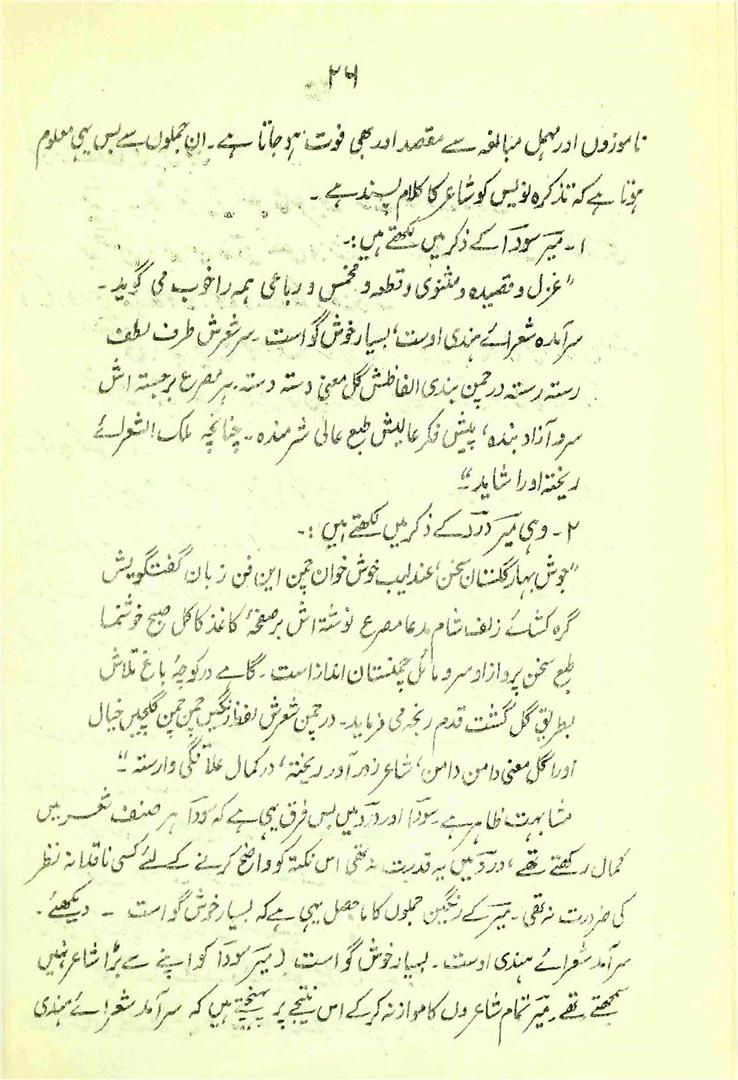 ۲۶
ناموزوں اور مہمل مبالغہ سے مقصد اور بھی فوت ہوجاتا ہے۔ ان جملوں سے بس یہی معلوم
ہوتا ہے کہ تذکرہ نویس کو شاعر کا کلام پسند ہے۔
۱۔ میرؔ سوداؔ کے ذکر میں لکھتے ہیں:۔
"غزل و قصیدہ و مثنوی و قطعہ و مخمس و رباعی ہمہ را خوب می گوید۔
سرآمدہ شعرائے ہندی اوست، بسیار خوش گو است۔ سر شعرش طرف لطف
رستہ رستہ در چمن بندی الفاظش گل معنی دستہ دستہ۔ ہر مصرع برجستہ اش
سرو آزاد بندہ، پیش فکر عالیش طبع عالی شرمندہ۔ چنانچہ ملک الشعرائے
ریختہ اورا شاید۔"
۲۔ وہی میرؔ دردؔ کے ذکر میں لکھتے ہیں:۔
"جوش بہار گلستان سخن، عندلیب خوش خوان چمن این فن زبان گفتگویش
گرہ کشائے زلف شام مدعا مصرع نوشتہ اش بر صفحۂ کاغذ کاکل صبح خوشنما
طبع سخن پرواز او سرو مائل چمنستان انداز است۔ گاہے در کوچۂ باغ تلاش
بطریق گل گشت قدم رنجہ می فرماید۔ در چمن شعرش لفظ رنگیں چمن چمن گلچیں خیال
اورا گل معنی دامن دامن، شاعر زور آور ریختہ، در کمال علاقگی وارستہ۔"
مشابہت ظاہر ہے۔ سوداؔ اور دردؔ میں بس فرق یہی ہے کہ سوداؔ ہر صنف شعر میں
کمال رکھتے تھے، دردؔ میں یہ قدرت نہ تھی اس نکتہ کو واضح کرنے کے لئے کسی ناقدانہ نظر
کی ضرورت نہ تھی۔ میرؔ کے رنگین جملوں کا ماحصل یہی ہے کہ بسیار خوش گو است ۔ دیکھئے۔
سرآمد شعرائے ہندی اوست۔ بسیار خوش گو است (میرؔ سوداؔ کو اپنے سے بڑا شاعر نہیں
سمجھتے تھے۔ میرؔ تمام شاعروں کا موازنہ کرکے اس نتیجے پر پہنچتے ہیں کہ سرآمد شعرائے ہندی